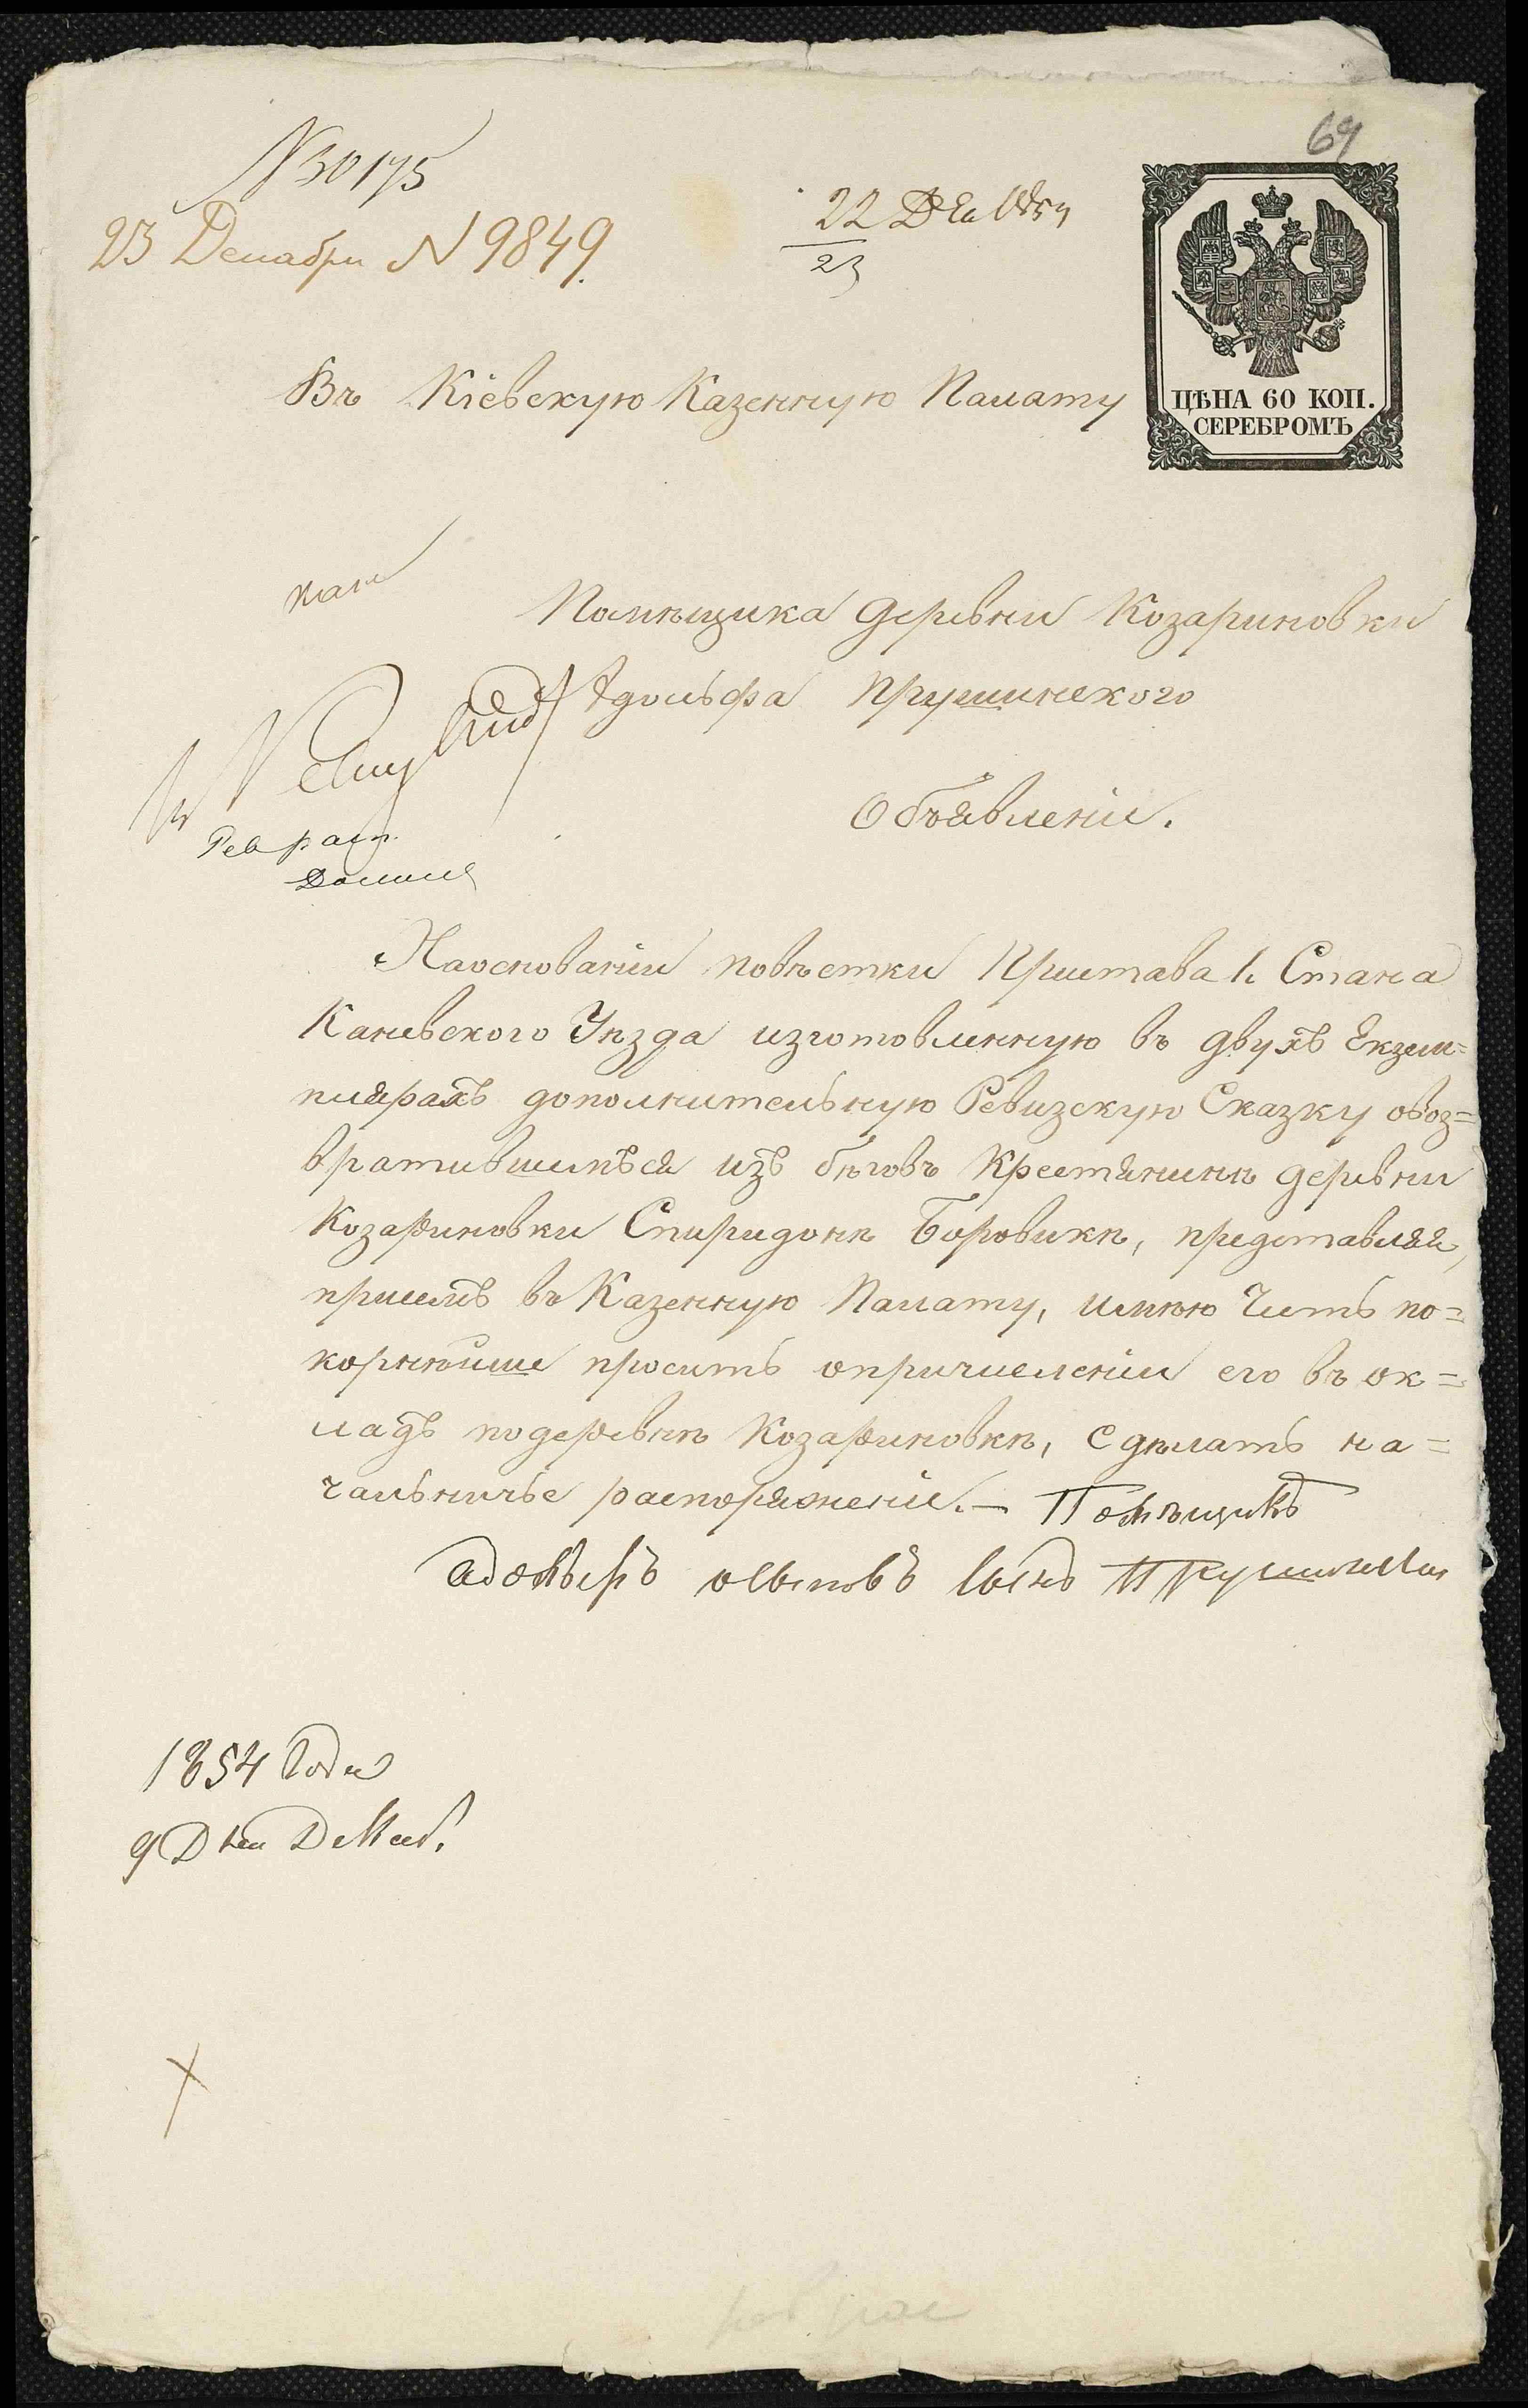 69
N 30175
23 Декабря N 9849.
22 Дек 1854
23
Въ Кіевскую Казенную Палату
ЦѢНА 60 КОП.
СЕРЕБРОМЪ
Помѣщика деревни Козариновки
Адольфа Прушинского
Объявленіе.
Рев
Наоснованіи повѣстки Пристава 1. Стана
Каневского Уѣзда изготовленную въ двухъ Екзем=
плярахъ дополнительную Ревизскую Сказку овоз=
вратившимъся изъ бѣговъ Крестянинѣ деревни
Козариновки Спиридонѣ Боровикѣ, представляя
присемъ въ Казенную Палату, имѣю Честь по=
корнейше просить опричисленіи его въ ок=
ладъ подеревнѣ Козариновкѣ, сдѣлать на=
чальничье распоряженіе. — Помѣщикъ
Адольфъ Осиповъ Сынъ Прушински
1854 Года
9 Дня Декаб.